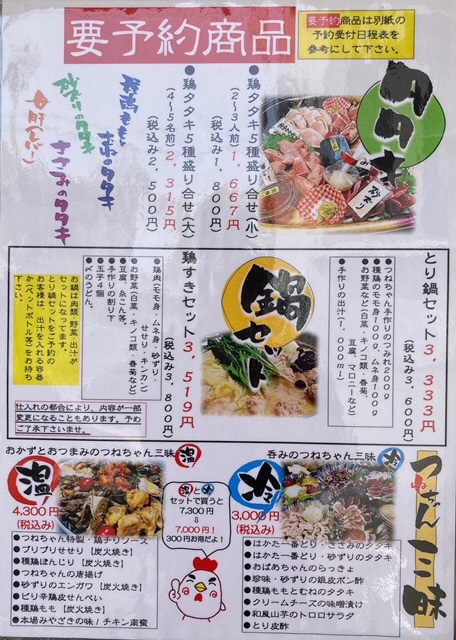 要予約商品
要予約商品は別紙の
予約受付日程表を
参考にして下さい。
タタキ
●鶏タタキ5種盛り合せ(小)
(2〜3人前)1,667円
(税込み1,800円)
●鶏タタキ5種盛り合せ(大)
(4〜5名前)2,315円
(税込み2,500円)
種鶏ももとむねのタタキ
砂ずりのタタキ
ささみのタタキ
白肝(レバー)
砂ずり
鍋セット
とり鍋セット3,333円
(税込み3,600円)
●つねちゃん手作りのつみれ200g
●種鶏のモモ身100g、ムネ身100g
●お野菜など(白菜・キノコ類・春菊、
豆腐、マロニーなど)
●手作りの出汁(1,000ml)
鶏すきセット3,519円
(税込み3,800円)
●鶏肉(モモ身・ムネ身・砂ずり・
せせり・キンカン)
●お野菜(白菜・キノコ類・春菊など)
豆腐、糸こん等。
●手作りの割り下
●玉子4個
●〆のうどん。
お鍋は肉類・野菜・出汁が
セットになってます。
とり鍋セットをご予約の
お客様は、出汁を入れる容器
か(ペットボトル等)をお持ち
下さい。
仕入れの都合により、内容が一部
変更になることもあります。予め
ご了承下さいませ。
つねちゃん三昧
おかずとおつまみのつねちゃん三昧 温
温
4,300円
(税込み)
●つねちゃん特製・鶏チリソース
●プリプリせせり【炭火焼き】
●種鶏ぼんじり【炭火焼き】
●つねちゃんの唐揚げ
●砂ずりのエンガワ【炭火焼き】
●ピリ辛鶏皮せんべい
●種鶏もも【炭火焼き】
●本場みやざきの味!チキン南蛮
温と冷
セットで買うと
7,300円
⇩
7,000円!
300円お得だよ!
呑みのつねちゃん三昧 冷
冷
3,000円
(税込み)
●はかた一番どり・ささみのタタキ
●はかた一番どり・砂ずりのタタキ
●おばあちゃんのらっきょ
●珍味・砂ずりの銀皮ポン酢
●種鶏ももとむねのタタキ
●クリームチーズの味噌漬け
●和風山芋のトロロサラダ
●とり皮酢